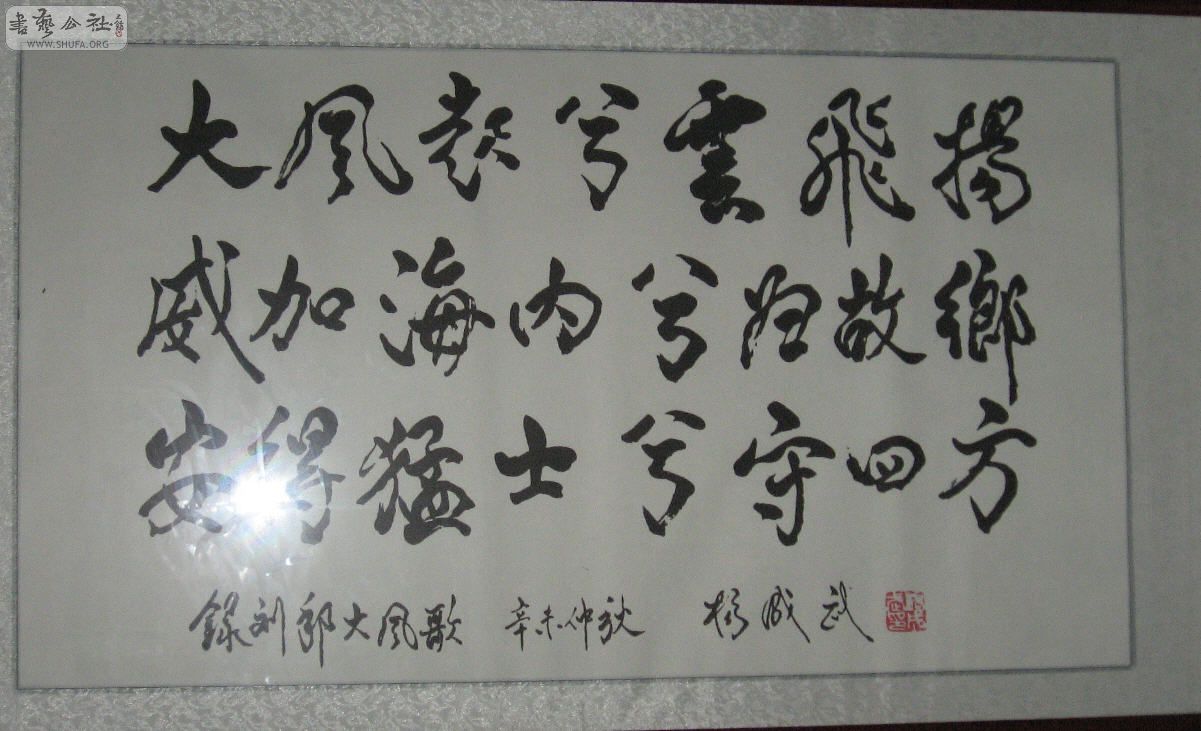 書藝公社
WWW.SHUFA.ORG
大風起兮雲飛揚
威加海内兮归故鄉
安得猛士兮守四方
錄刘邦大风歌 辛未仲秋 楊成武